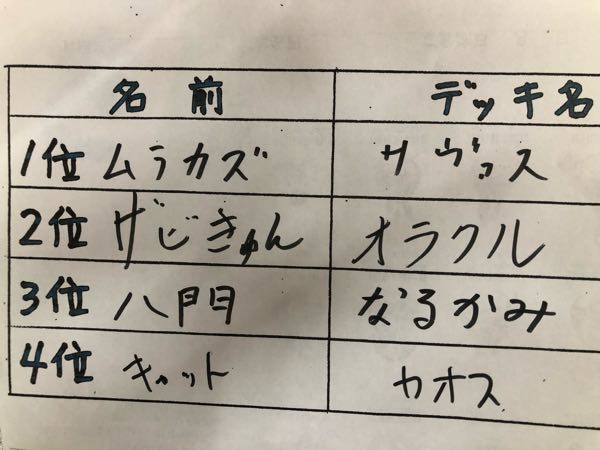 名前 デッキ名
1位 ムラカズ サヴァス
2位 げじきゅん オラクル
3位 八門 なるかみ
4位 キャット カオス